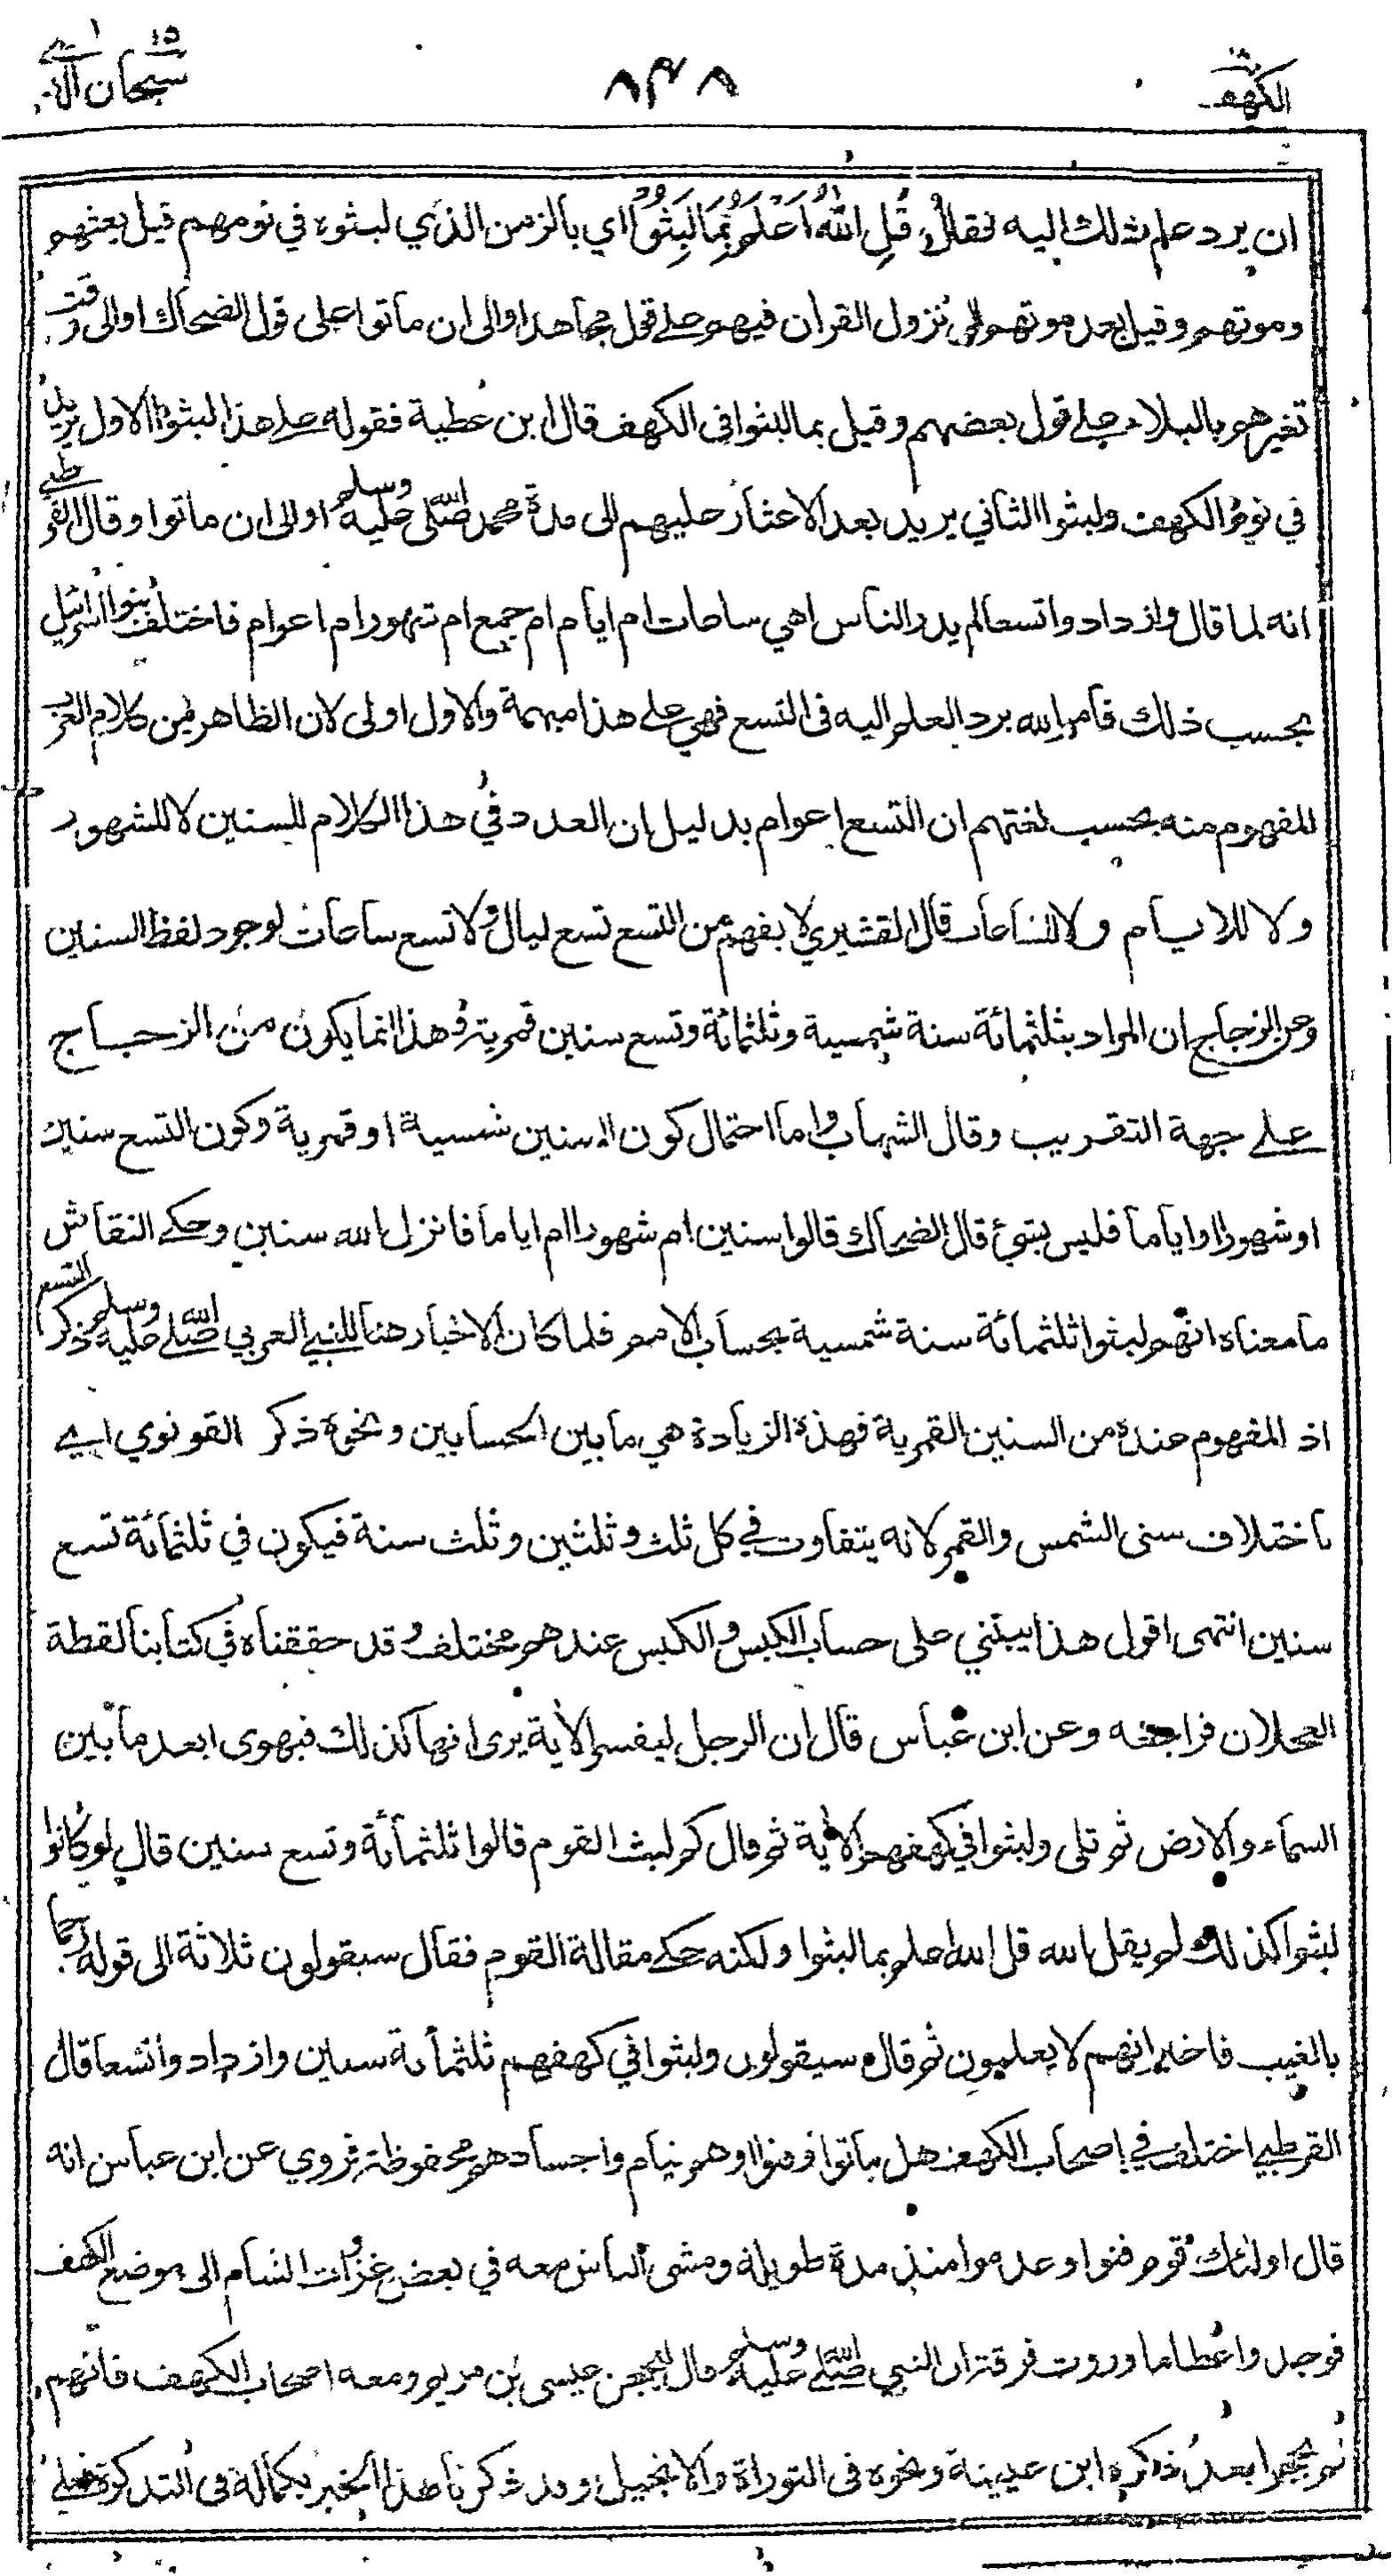 الكهف ١٨
٨٣٨
سبحان الذي ١٥
ان يرد علم ذلك اليه فقال قُلِ اللهُ اَعْلَمُ بِمَا لَبِثُوْا اي بالزمن الذي لبثوه في نومهم قبل بعثهم
وموتهم وقيل بعد موتهم الى نزول القران فيهم على قول مجاهد او الى ان ماتوا على قول الضحاك او الى وقت
تغيرهم بالبلاء على قول بعضهم وقيل بما لبثوا في الكهف قال ابن عطية فقوله على هذا لبثوا الاول يريد
في نوم الكهف ولبثوا الثاني يريد بعد الاعثار عليهم الى مدة محمد صلى الله عليه وسلم او الى ان ماتوا وقال القرطبي
انه لما قال وازدادوا تسعا لم يدر الناس اهي ساعات ام ايام ام جمع ام شهور ام اعوام فاختلف بنوا اسرائيل
بحسب ذلك فامر الله برد العلم اليه في التسع فهي على هذا مبهمة والاول اولى لان الظاهر من كلام العرب
المفهوم منه بحسب لغتهم ان التسع اعوام بدليل ان العدد في هذا الكلام للسنين لا للشهور
ولا للايام ولا للساعات قال القشيري لا يفهم من التسع تسع ليال ولا تسع ساعات لوجود لفظ السنين
وعن الزجاج ان المراد بثلثمائة سنة شمسية وثلثمائة وتسع سنين قمرية وهذا انما يكون من الزجاج
على جهة التقريب وقال الشهاب واما احتمال كون السنين شمسية او قمرية وكون التسع سنين
او شهورا او اياما فليس بشئ قال الضحاك قالوا سنين ام شهورا ام اياما فانزل الله سنين وحكى النقاش
ما معناه انهم لبثوا ثلثمائة سنة شمسية بحساب الامم فلما كان الاخبار هنا للنبي العربي صلى الله عليه وسلم ذكر التسع
اذ المفهوم عنده من السنين القمرية فهذة الزيادة هي ما بين الحسابين ونحوه ذكر القونوي اي
باختلاف سنى الشمس والقمر لانه يتفاوت في كل ثلث وثلثين وثلث سنة فيكون في ثلثمائة تسع
سنين انتهى اقول هذا يبتني على حساب الكبس والكبس عندهم مختلف وقد حققناه في كتابنا لقطة
العجلان فراجعه وعن ابن عباس قال ان الرجل ليفسر الاية يرى انها كذلك فيهوى ابعد ما بين
السماء والارض ثم تلى ولبثوا في كهفهم الاية ثم قال كم لبث القوم قالوا ثلثمائة وتسع سنين قال لو كانوا
لبثوا كذلك لم يقل الله قل الله اعلم بما لبثوا ولكنه حكى مقالة القوم فقال سيقولون ثلاثة الى قوله رجما
بالغيب فاخبر انهم لا يعلمون ثم قال سيقولون ولبثوا في كهفهم ثلثمائة سنين وازدادوا تسعا قال
القرطبي اختلف في اصحاب الكهف هل ماتوا وفنوا او هم نيام واجسادهم محفوظة فروي عن ابن عباس انه
قال اولئك قوم فنوا وعدموا منذ مدة طويلة ومشى الناس معه في بعض غزوات الشام الى موضع الكهف
فوجدوا عظاما وروت فرقة ان النبي صلى الله عليه وسلم قال ليحجن عيسى بن مريم ومعه اصحاب الكهف فانهم
لم يحجوا بعد ذكره ابن عيينة ونحوه في التوراة والانجيل وقد ذكرنا هذا الخبر بكماله في التذكرة فعلى